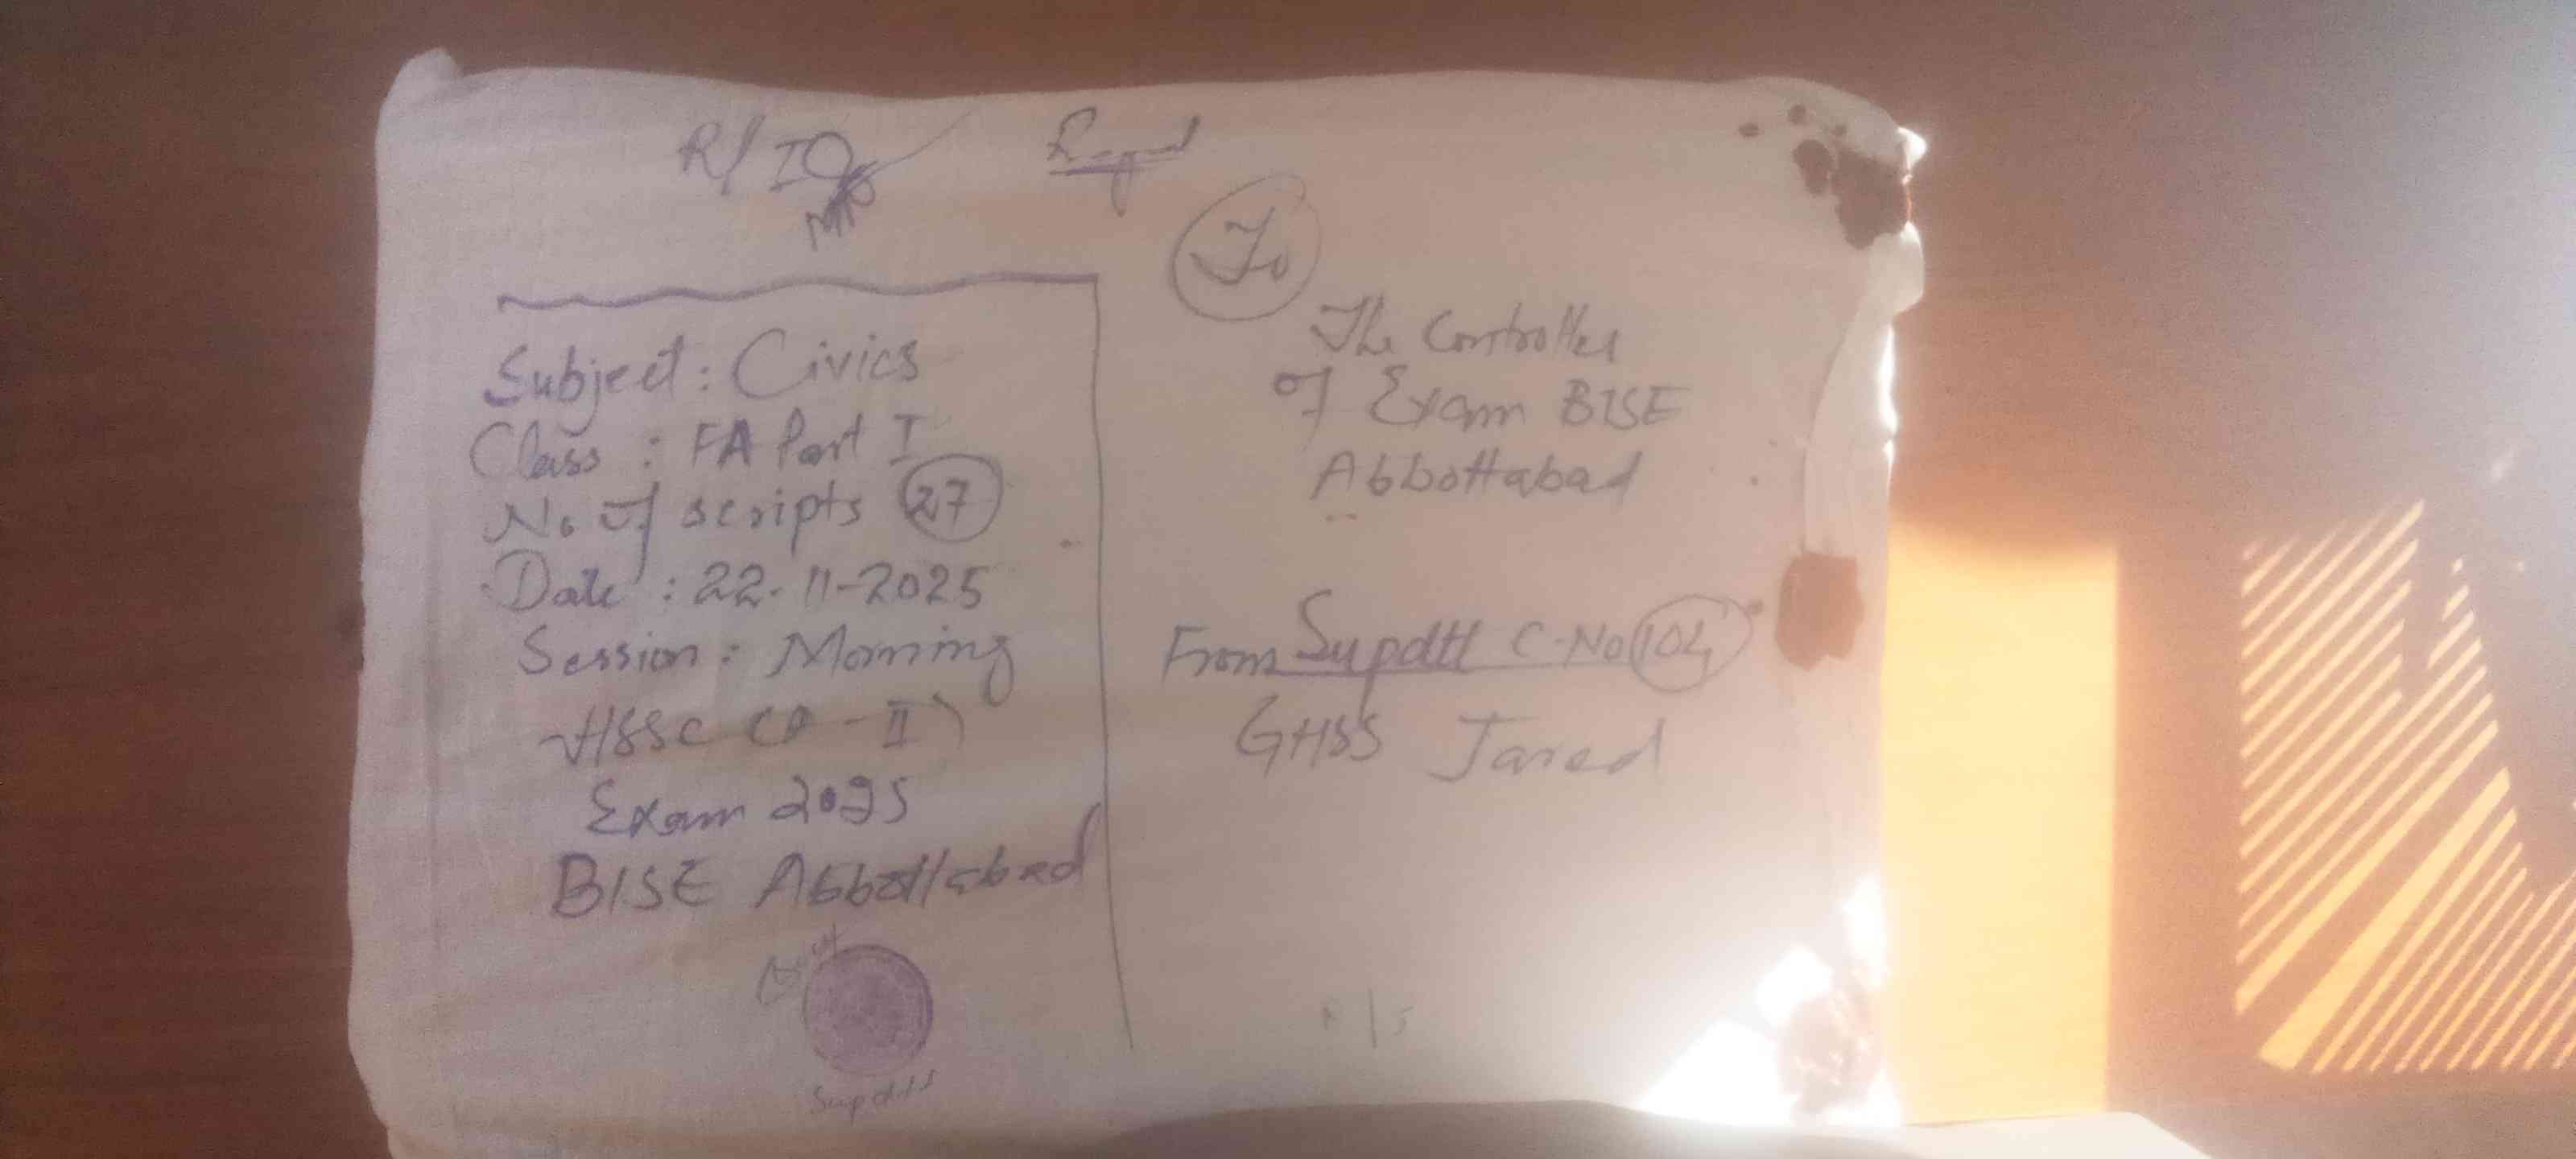 R/IO
Subject: Civics
Class : FA Part I
No of scripts 27
Date : 22-11-2025
Session : Morning
HSSC (A-II)
Exam 2025
BISE Abbottabad
Supdtt
To
The Controller
of Exam BISE
Abbottabad
From Supdtt C-No 104
GHSS Jared